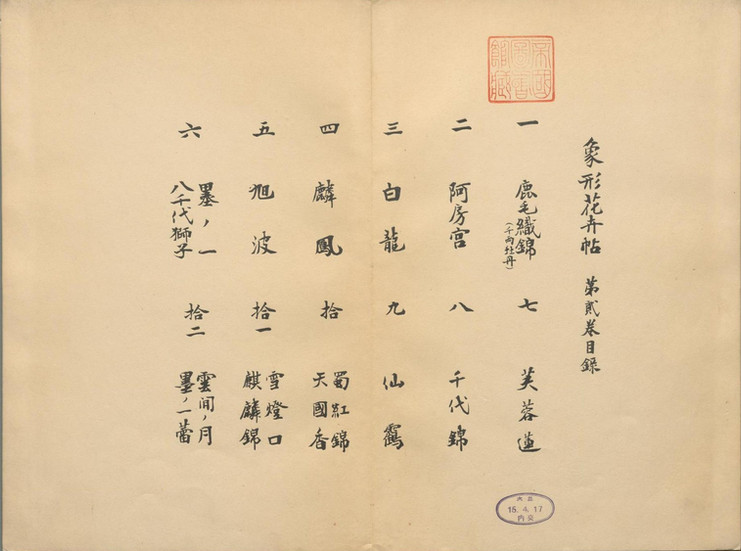 象形花卉帖 第貳巻目録
一 鹿毛織錦
(千両牡丹)
七 芙蓉蓮
二 阿房宮
八 千代錦
三 白龍
九 仙鶴
四 麟鳳
拾 蜀紅錦
天國香
五 旭波
拾一 雪燈口
麒麟錦
六 墨ノ一
八千代獅子
拾二 雲间ノ月
墨ノ一蕾
帝國圖書館藏
15.4.17
内交